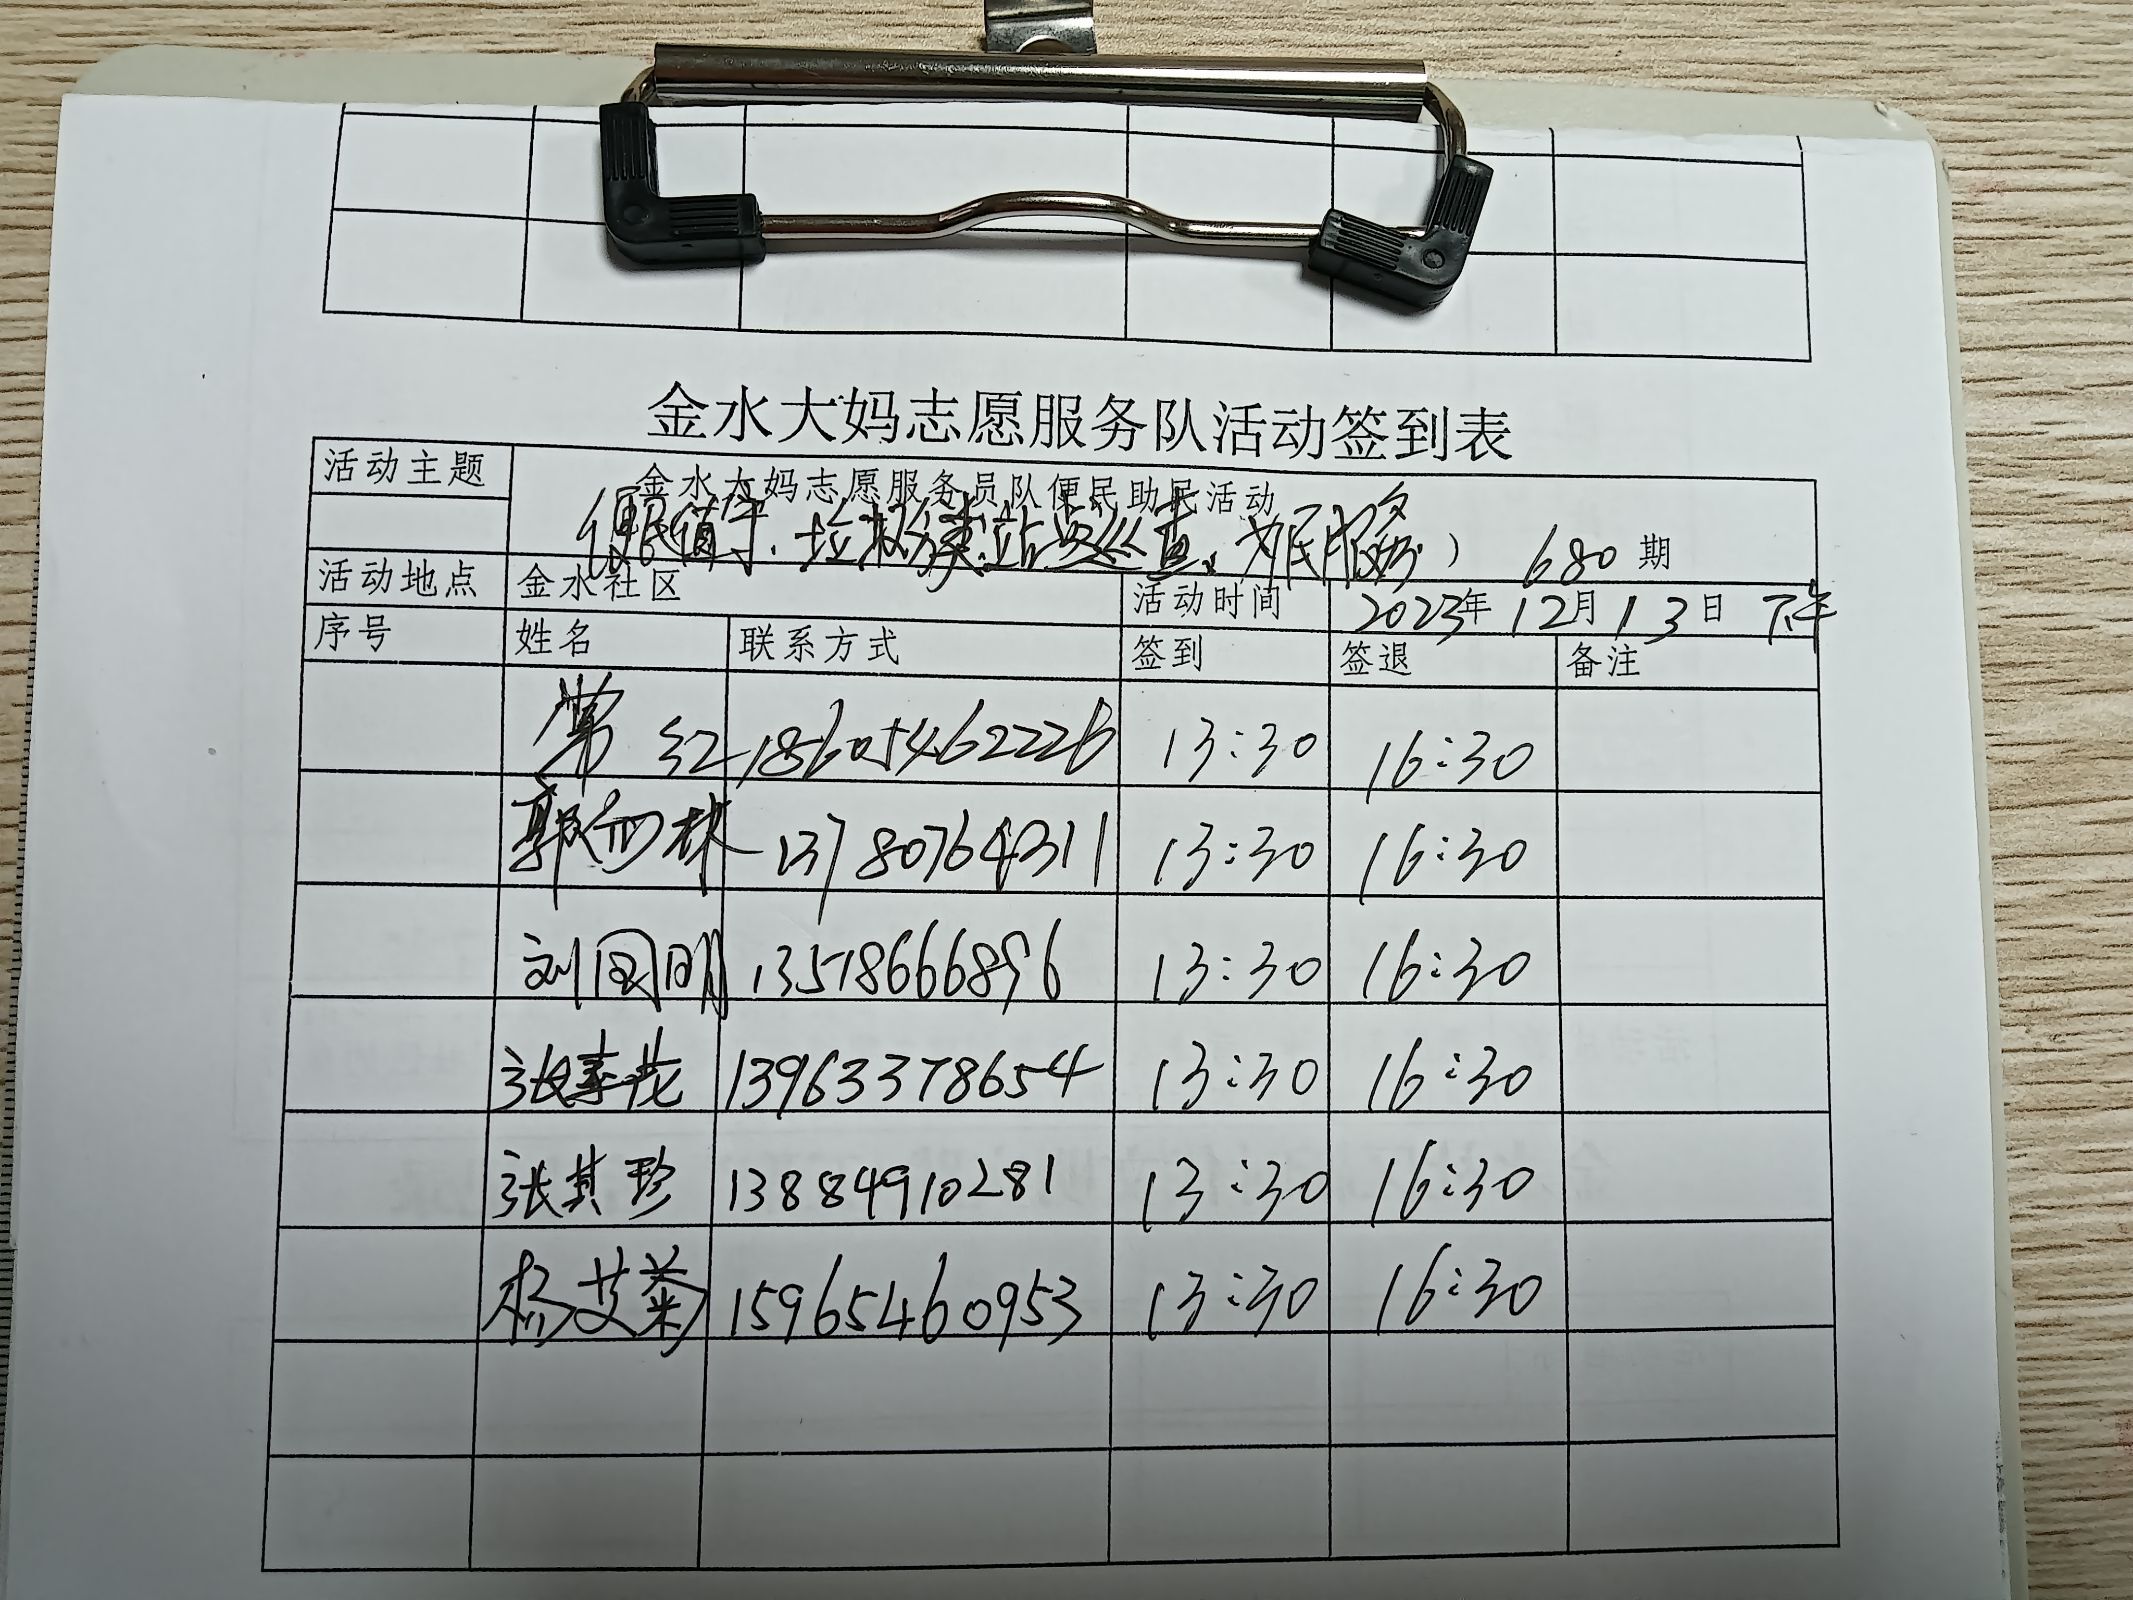 金水大妈志愿服务队活动签到表
活动主题 金水大妈志愿服务员队便民助民活动
(便民值守、垃圾分类站点巡查、为民服务) 680期
活动地点 金水社区 活动时间 2023年12月13日 下午
序号 姓名 联系方式 签到 签退 备注
常红 18605462226 13:30 16:30
郭 林 13780764311 13:30 16:30
刘国明 13518666896 13:30 16:30
张 花 13963378654 13:30 16:30
张其珍 13884910281 13:30 16:30
杨艾菊 15965460953 13:30 16:30